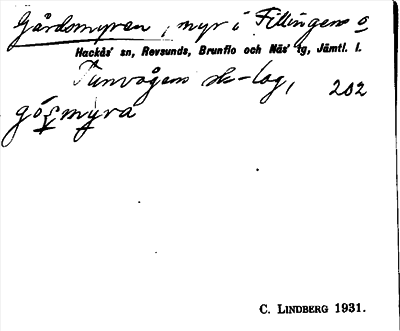 Gårdsmyren, myr i Fillingens o
Hackås' sn, Revsunds, Brunflo och Näs' tg, Jämtl. l.
Tanvågens sk-lag, 202
gó ș myra
C. LINDBERG 1931.